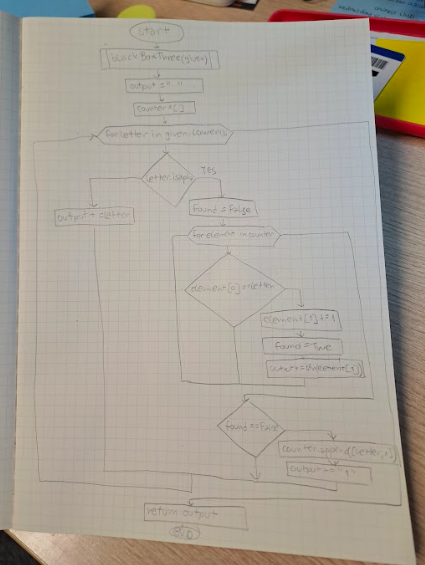 start
blackBoxThree(given)
output = " "
counter = []
for letter in given.lower():
letter.isalpha
YES
output += letter
found = False
for element in counter
element[0] == letter
element[1] += 1
found = True
found == False
counter.append([letter,1])
output += "1"
return output
end